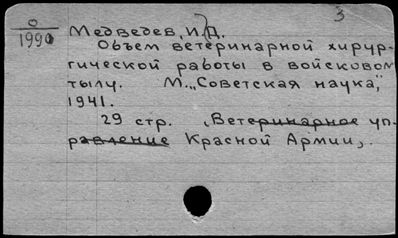 3
0
1990
Медведев, И.Д.
Объем ветеринарной хирур-
гической работы в войсковом
тылу. М., „Советская наука",
1941.
29 стр. (Ветеринарное уп-
равление Красной Армии).